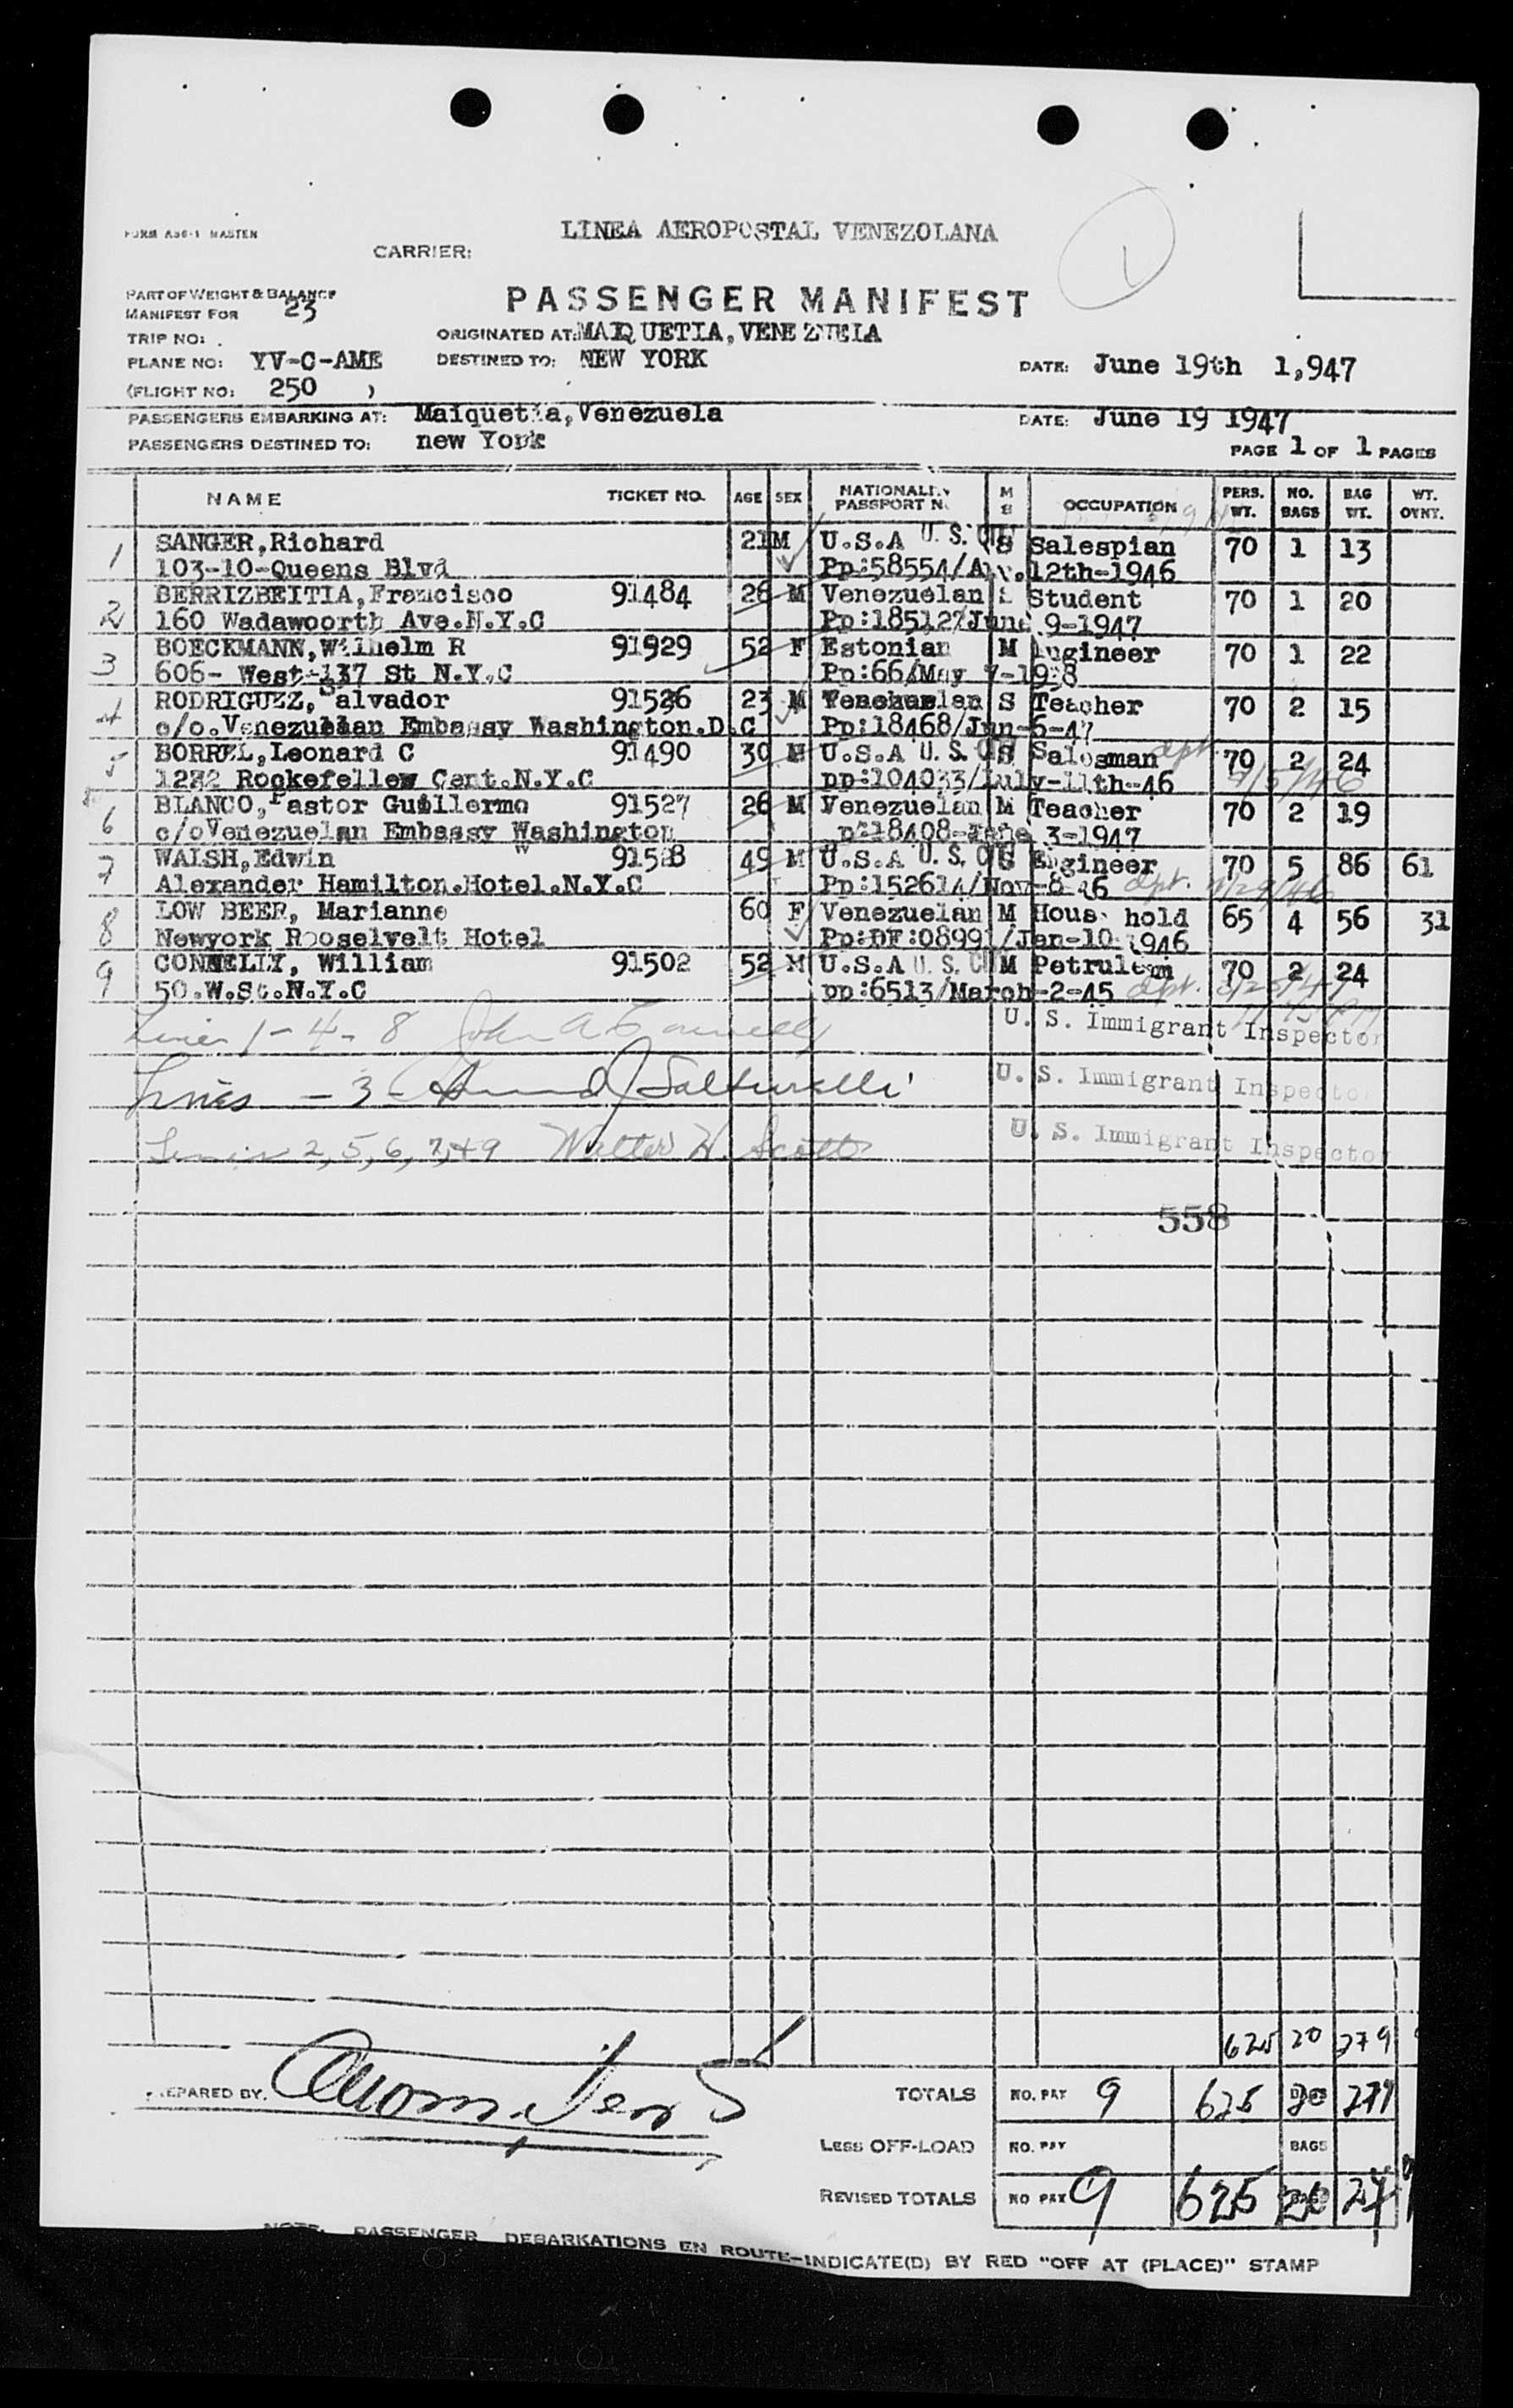 FORM A56-1 MASTER
LINEA AEROPOSTAL VENEZOLANA
CARRIER:
PART OF WEIGHT & BALANCE
MANIFEST FOR 23
PASSENGER MANIFEST
TRIP NO:
ORIGINATED AT: MAIQUETIA, VENEZUELA
PLANE NO: YV-C-AME
DESTINED TO: NEW YORK
DATE: June 19th 1,947
(FLIGHT NO: 250 )
PASSENGERS EMBARKING AT: Maiquetia, Venezuela
DATE: June 19 1947
PASSENGERS DESTINED TO: new York
PAGE 1 OF 1 PAGES
NAME TICKET NO. AGE SEX NATIONALITY PASSPORT NO. M S OCCUPATION PERS. WT. NO. BAGS BAG WT. WT. OVWT.
1 SANGER, Richard 21 M U.S.A U.S. S Salespian 70 1 13
103-10-Queens Blvd Pp:58554/ 12th-1946
2 BERRIZBEITIA, Francisco 91484 26 M Venezuelan S Student 70 1 20
160 Wadawoorth Ave.N.Y.C Pp:18512/June 9-1947
3 BOECKMANN, Wilhelm R 91929 52 F Estonian M Engineer 70 1 22
606- West-137 St N.Y.C Pp:66/May 7-1938
4 RODRIGUEZ, Salvador 91526 23 M Venezuelan S Teacher 70 2 15
c/o.Venezuelan Embassy Washington.D.C Pp:18468/Jun-6-47
5 BORREL, Leonard C 91490 30 M U.S.A U.S. S Salesman 70 2 24
1272 Rockefeller Cent.N.Y.C pp:104033/July-11th-46
6 BLANCO, Pastor Guillermo 91527 26 M Venezuelan M Teacher 70 2 19
c/oVenezuelan Embassy Washington p:18408-June 3-1947
7 WALSH, Edwin W 49 M U.S.A U.S. Engineer 70 5 86 61
Alexander Hamilton.Hotel.N.Y.C Pp:152614/Nov-8-46 dpt.
8 LOW BEER, Marianne 60 F Venezuelan M House hold 65 4 56 31
Newyork Rooselvelt Hotel Pp:DF:08991/Jan-10-1946
9 CONNELLY, William 91502 52 M U.S.A U.S. M Petruleum 70 2 24
50.W.St.N.Y.C pp:6513/March-2-45 dpt.
Lines 1-4-8 John A Connelly U.S. Immigrant Inspector
Lines - 3 - U.S. Immigrant Inspector
Lines 2,5,6,7,+9 Walter H. Scott U.S. Immigrant Inspector
558
625 20 279
PREPARED BY.
TOTALS NO. PAX 9 625 20 BAGS 279
LESS OFF-LOAD NO. PAX BAGS
REVISED TOTALS NO PAX 9 625 20 279
NOTE. PASSENGER DEBARKATIONS EN ROUTE-INDICATE(D) BY RED "OFF AT (PLACE)" STAMP